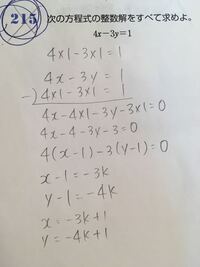 215 次の方程式の整数解をすべて求めよ。
4x-3y=1
4×1-3×1=1
4x-3y=1
-) 4×1-3×1=1
4x-4×1-3y-3×1=0
4x-4-3y-3=0
4(x-1)-3(y-1)=0
x-1=-3k
y-1=-4k
x=-3k+1
y=-4k+1